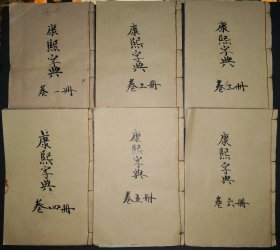 康熙字典
卷一册
康熙字典
卷二册
康熙字典
卷三册
康熙字典
卷四册
康熙字典
卷五册
康熙字典
卷六册